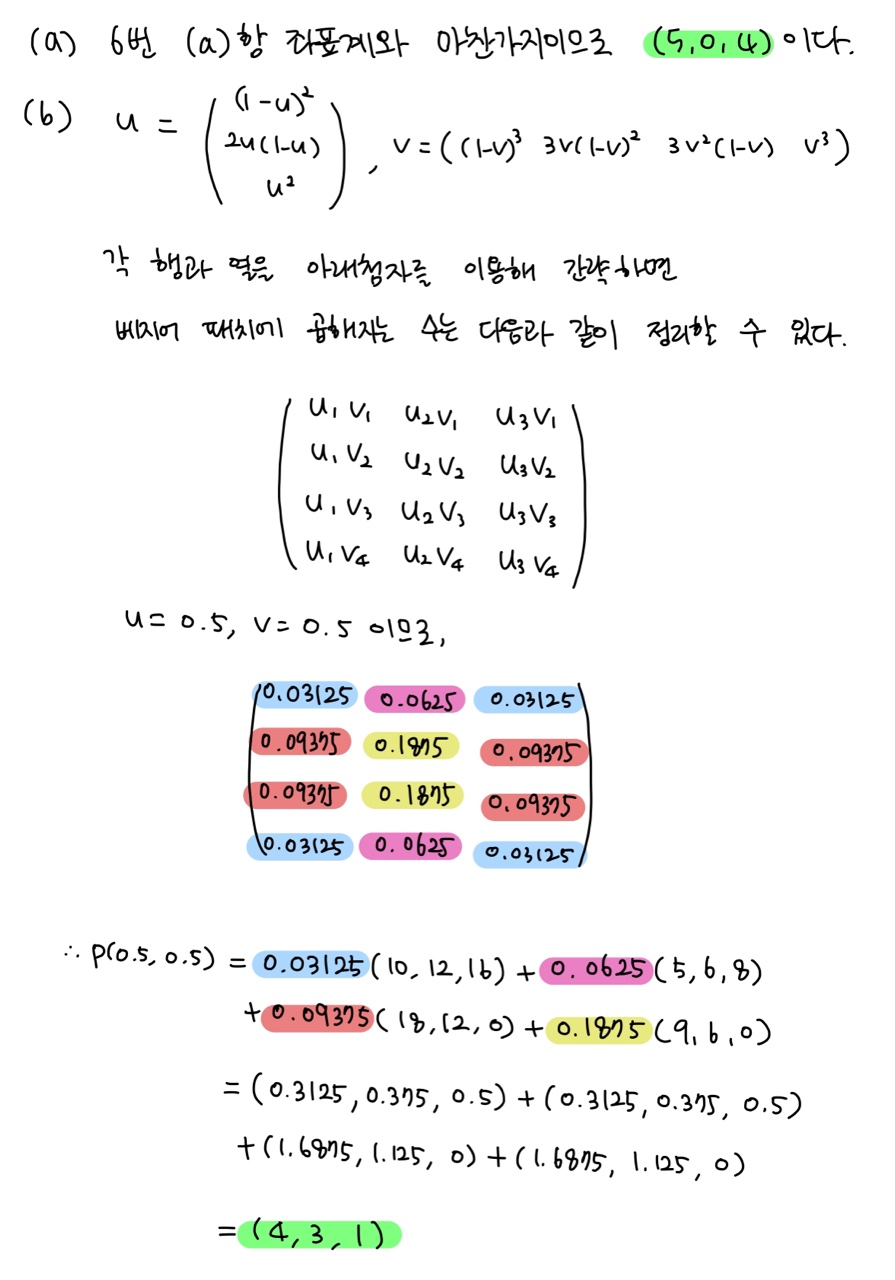 (a) 6번 (a)항 좌표계와 마찬가지이므로 (5,0,4)이다.
(b) u = ( (1-u)² 2u(1-u) u² ), v = ( (1-v)³ 3v(1-v)² 3v²(1-v) v³ )
각 행과 열을 아래첨자를 이용해 간략하면
베지어 패치에 곱해지는 수는 다음과 같이 정리할 수 있다.
u₁v₁ u₂v₁ u₃v₁
u₁v₂ u₂v₂ u₃v₂
u₁v₃ u₂v₃ u₃v₃
u₁v₄ u₂v₄ u₃v₄
u = 0.5, v = 0.5 이므로,
0.03125 0.0625 0.03125
0.09375 0.1875 0.09375
0.09375 0.1875 0.09375
0.03125 0.0625 0.03125
∴ P(0.5, 0.5) = 0.03125(10, 12, 16) + 0.0625(5, 6, 8)
+ 0.09375(18, 12, 0) + 0.1875(9, 6, 0)
= (0.3125, 0.375, 0.5) + (0.3125, 0.375, 0.5)
+ (1.6875, 1.125, 0) + (1.6875, 1.125, 0)
= (4, 3, 1)